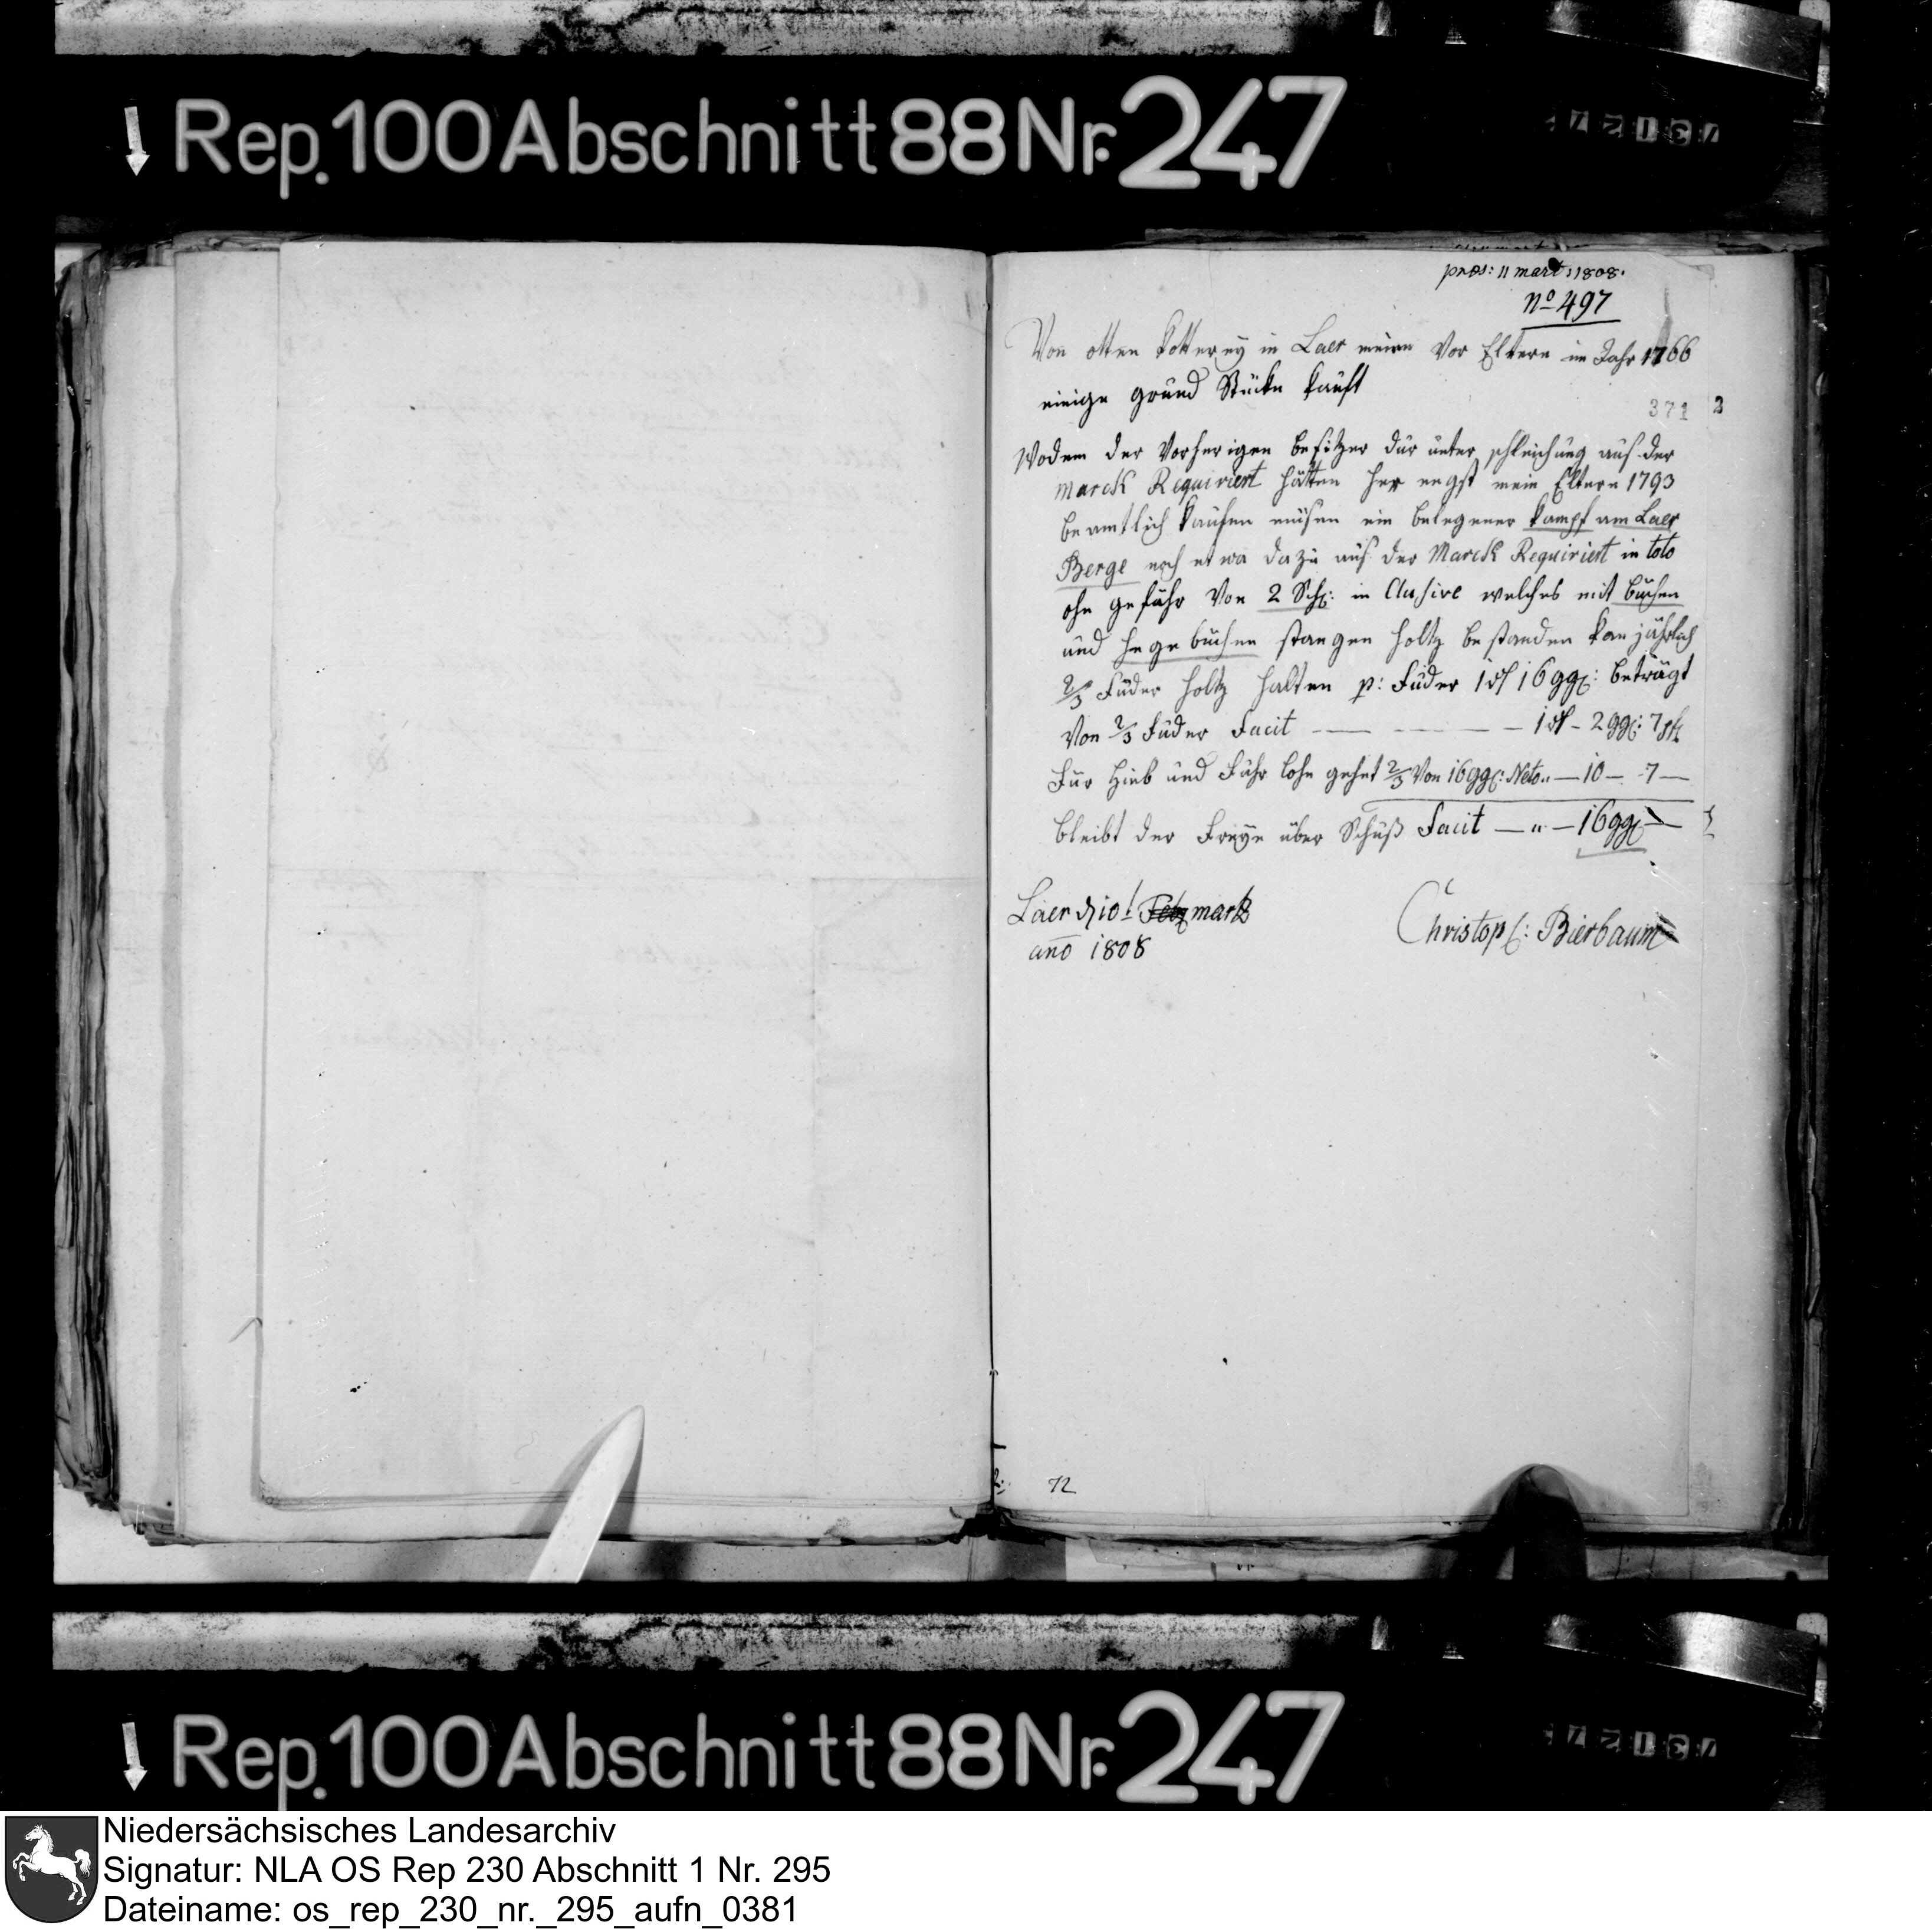 Rep. 100 Abschnitt 88 Nr. 247
præs: 11 mart: 1808.
no 497
Von otten Kotterey in Laer meine Vor Eltern im Jahr 1766
einige grund Stücke kauft
371
Wodem der Vorherigen besitzer dür unter schleichung auf der
marck Requiriert hätten her engst mein Eltern 1793
beamtlich kaufen müsen ein belegener Kampf am Laer
Berge noch et wa dazu aus der Marck Requiriert in toto
ohn gefähr Von 2 Sch: in Clusive welches mit büchen
und hege büchen stangen holtz bestanden kan jährlich
2/3 Fuder holtz halten p: Fuder 1 rt 16 gg: beträgt
Von 2/3 Fuder Facit — — — 1 rt - 2 gg: 7 pf
Für Hieb und Fuhr lohn gehet 2/3 Von 16 gg: Neto „ — 10 — 7 —
bleibt der Freye über Schuß Facit — „ — 16 gg —
Laer d 10t Feb martz
ano 1808
Christoph: Bierbaum
72
Rep. 100 Abschnitt 88 Nr. 247
Niedersächsisches Landesarchiv
Signatur: NLA OS Rep 230 Abschnitt 1 Nr. 295
Dateiname: os_rep_230_nr._295_aufn_0381